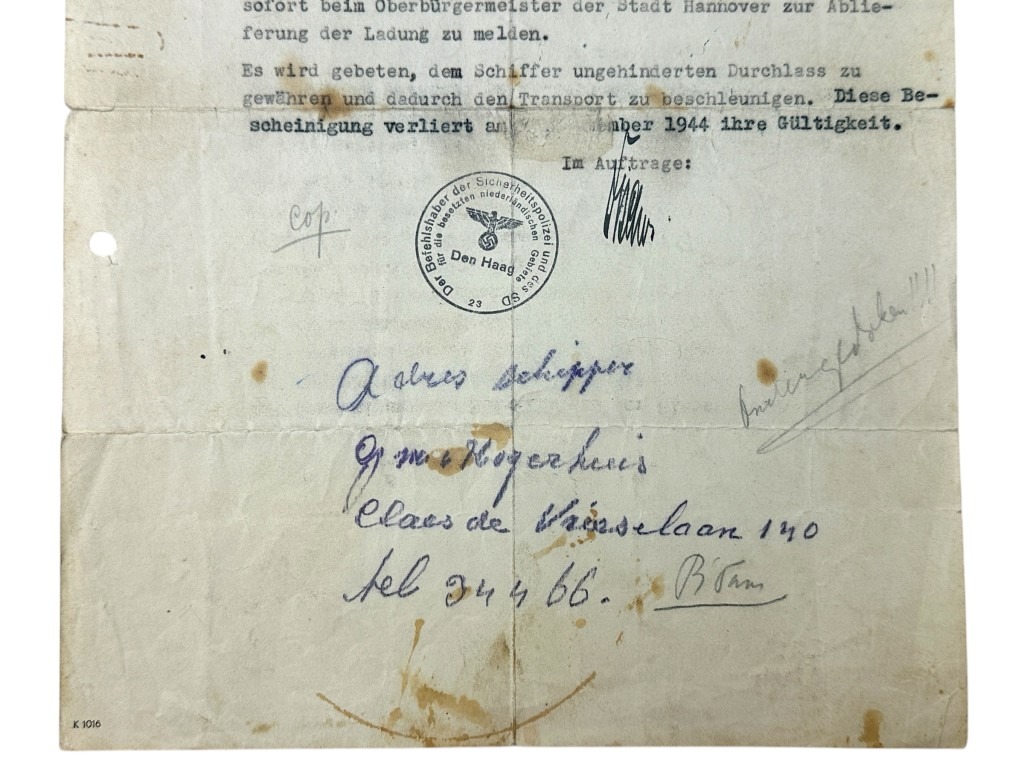 sofort beim Oberbürgermeister der Stadt Hannover zur Ablie-
ferung der Ladung zu melden.
Es wird gebeten, dem Schiffer ungehinderten Durchlass zu
gewähren und dadurch den Transport zu beschleunigen. Diese Be-
scheinigung verliert am mber 1944 ihre Gültigkeit.
Im Auftrage:
Der Befehlshaber der Sicherheitspolizei und des SD
für die besetzten niederländischen Gebiete
Den Haag
23
Cop.
Adres schipper
Hogerhuis
Claes de Vrieselaan 140
tel 34466.
R'dam
K 1016